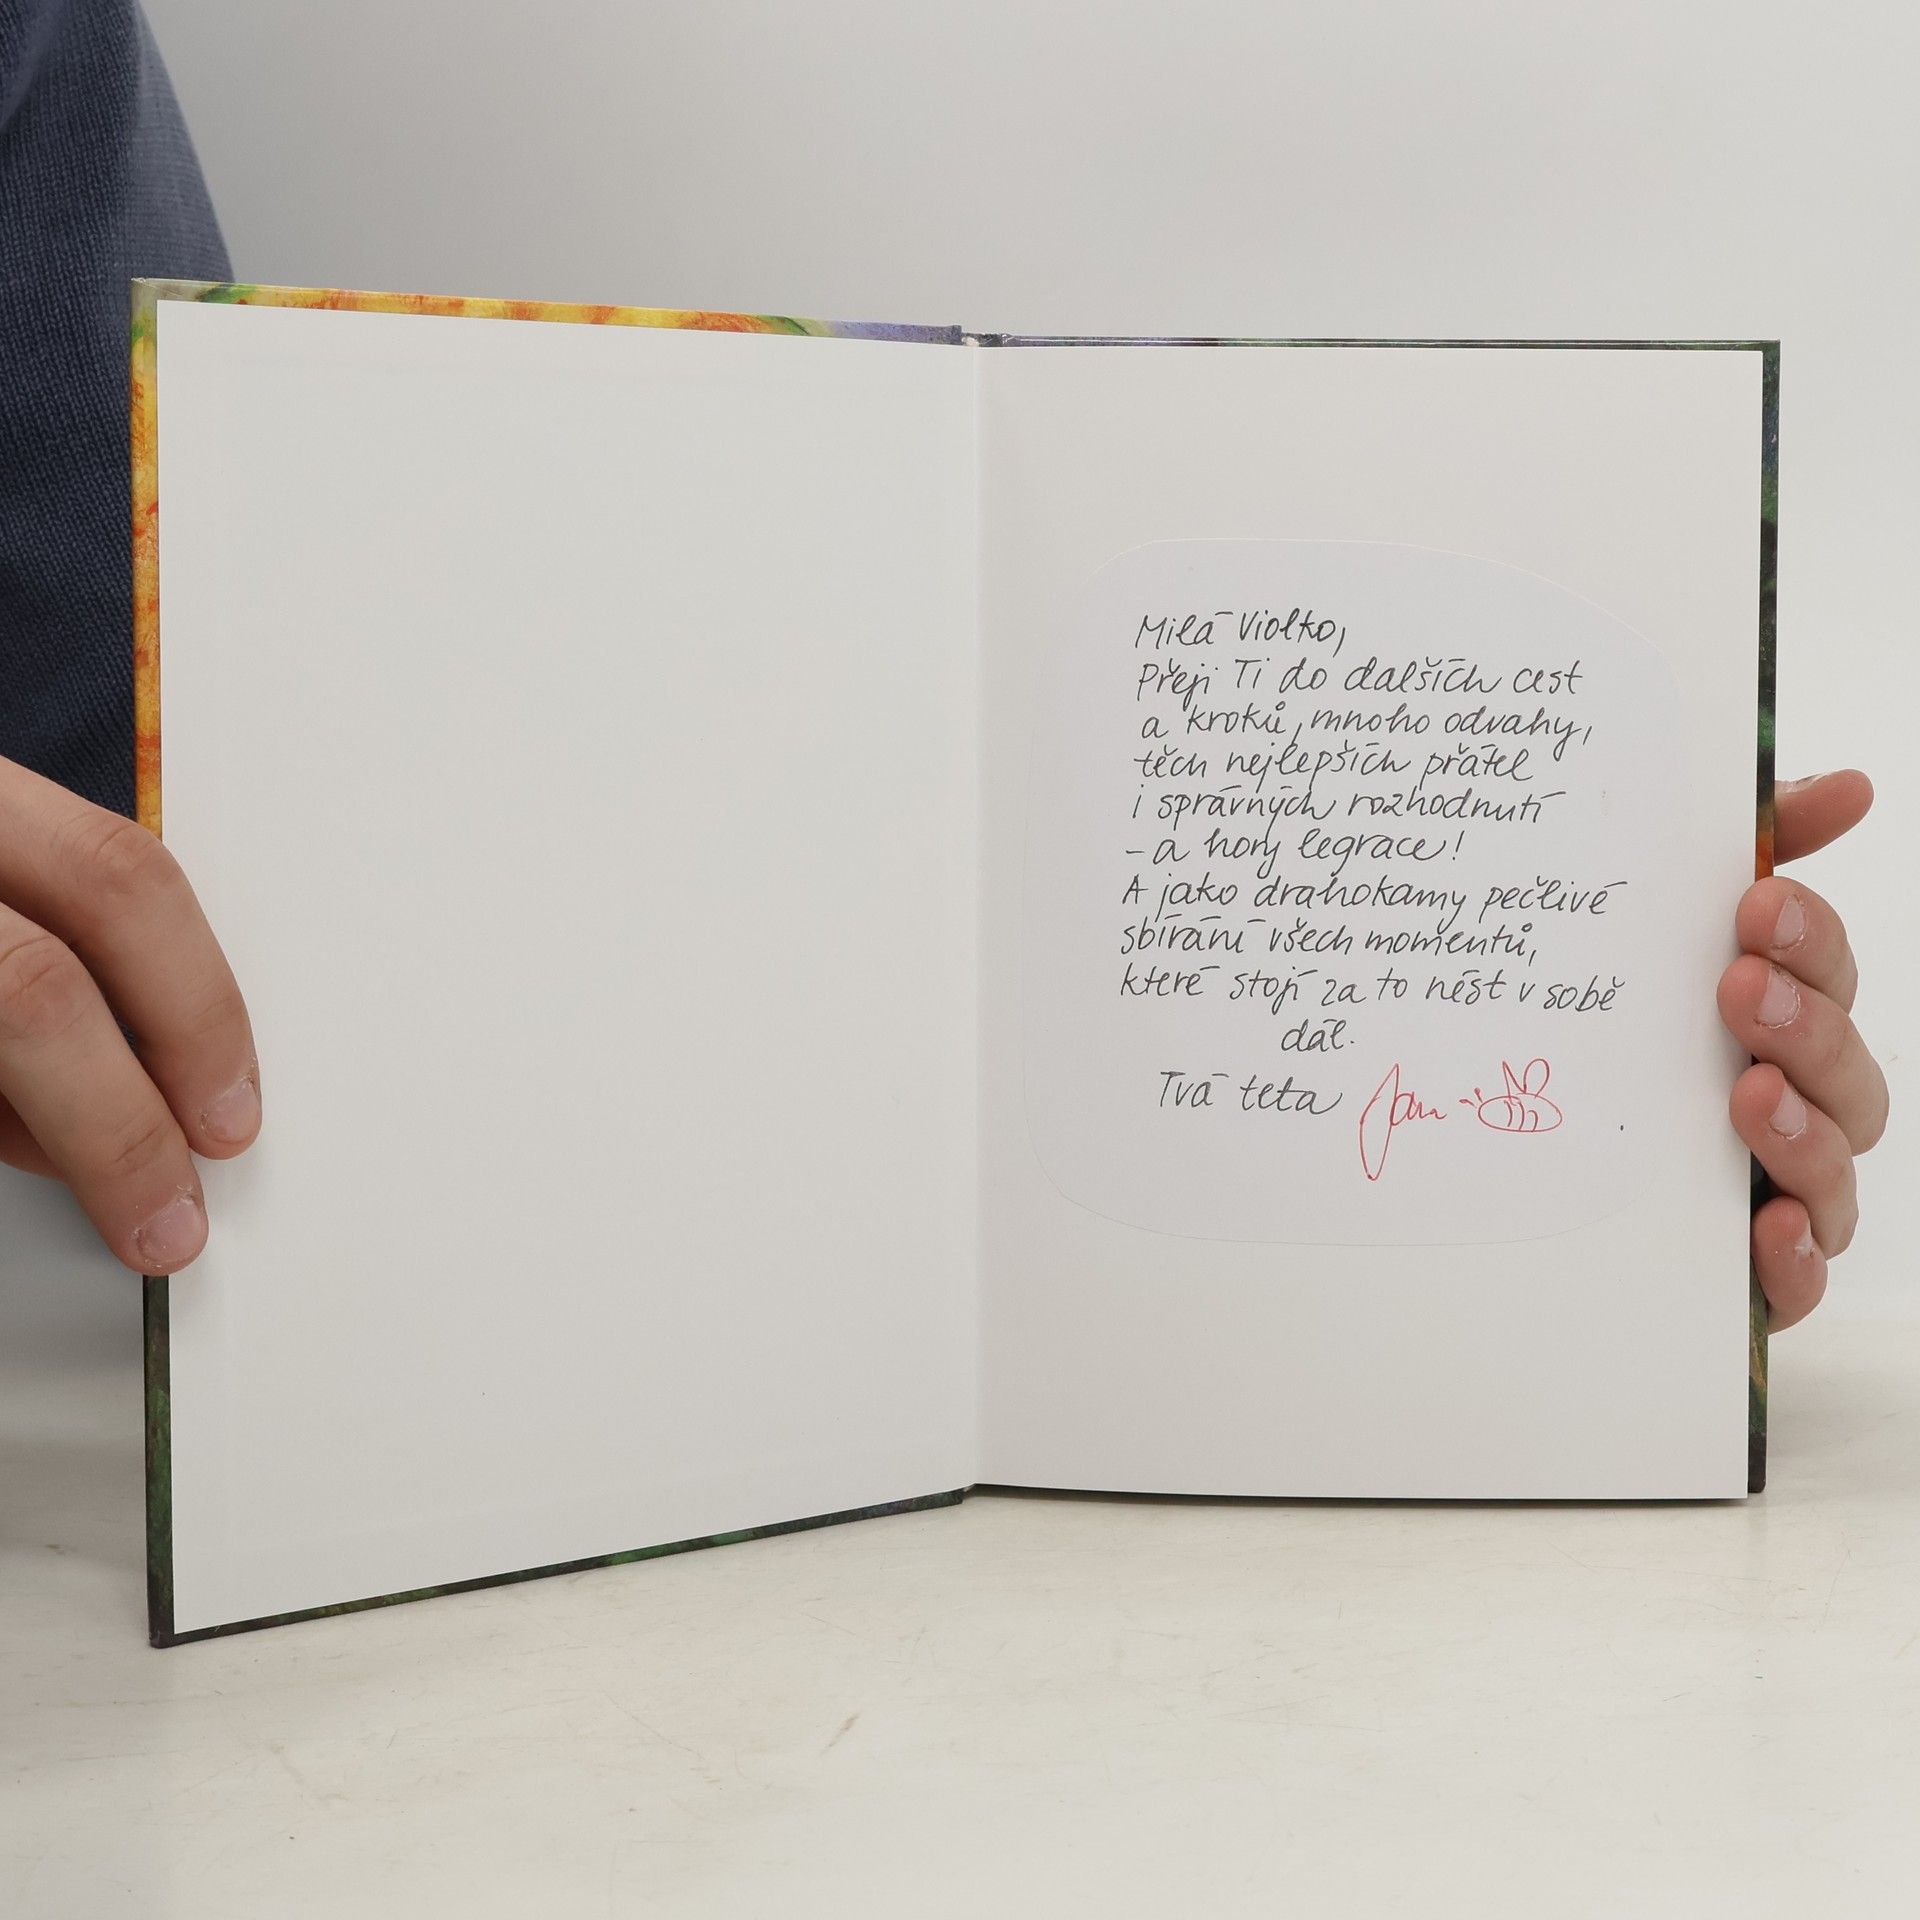 Milá Violko,
Přeji Ti do dalších cest
a kroků, mnoho odvahy,
těch nejlepších přátel
i správných rozhodnutí
- a hory legrace!
A jako drahokamy pečlivé
sbírání všech momentů,
které stojí za to nést v sobě
dál.
Tvá teta Jana